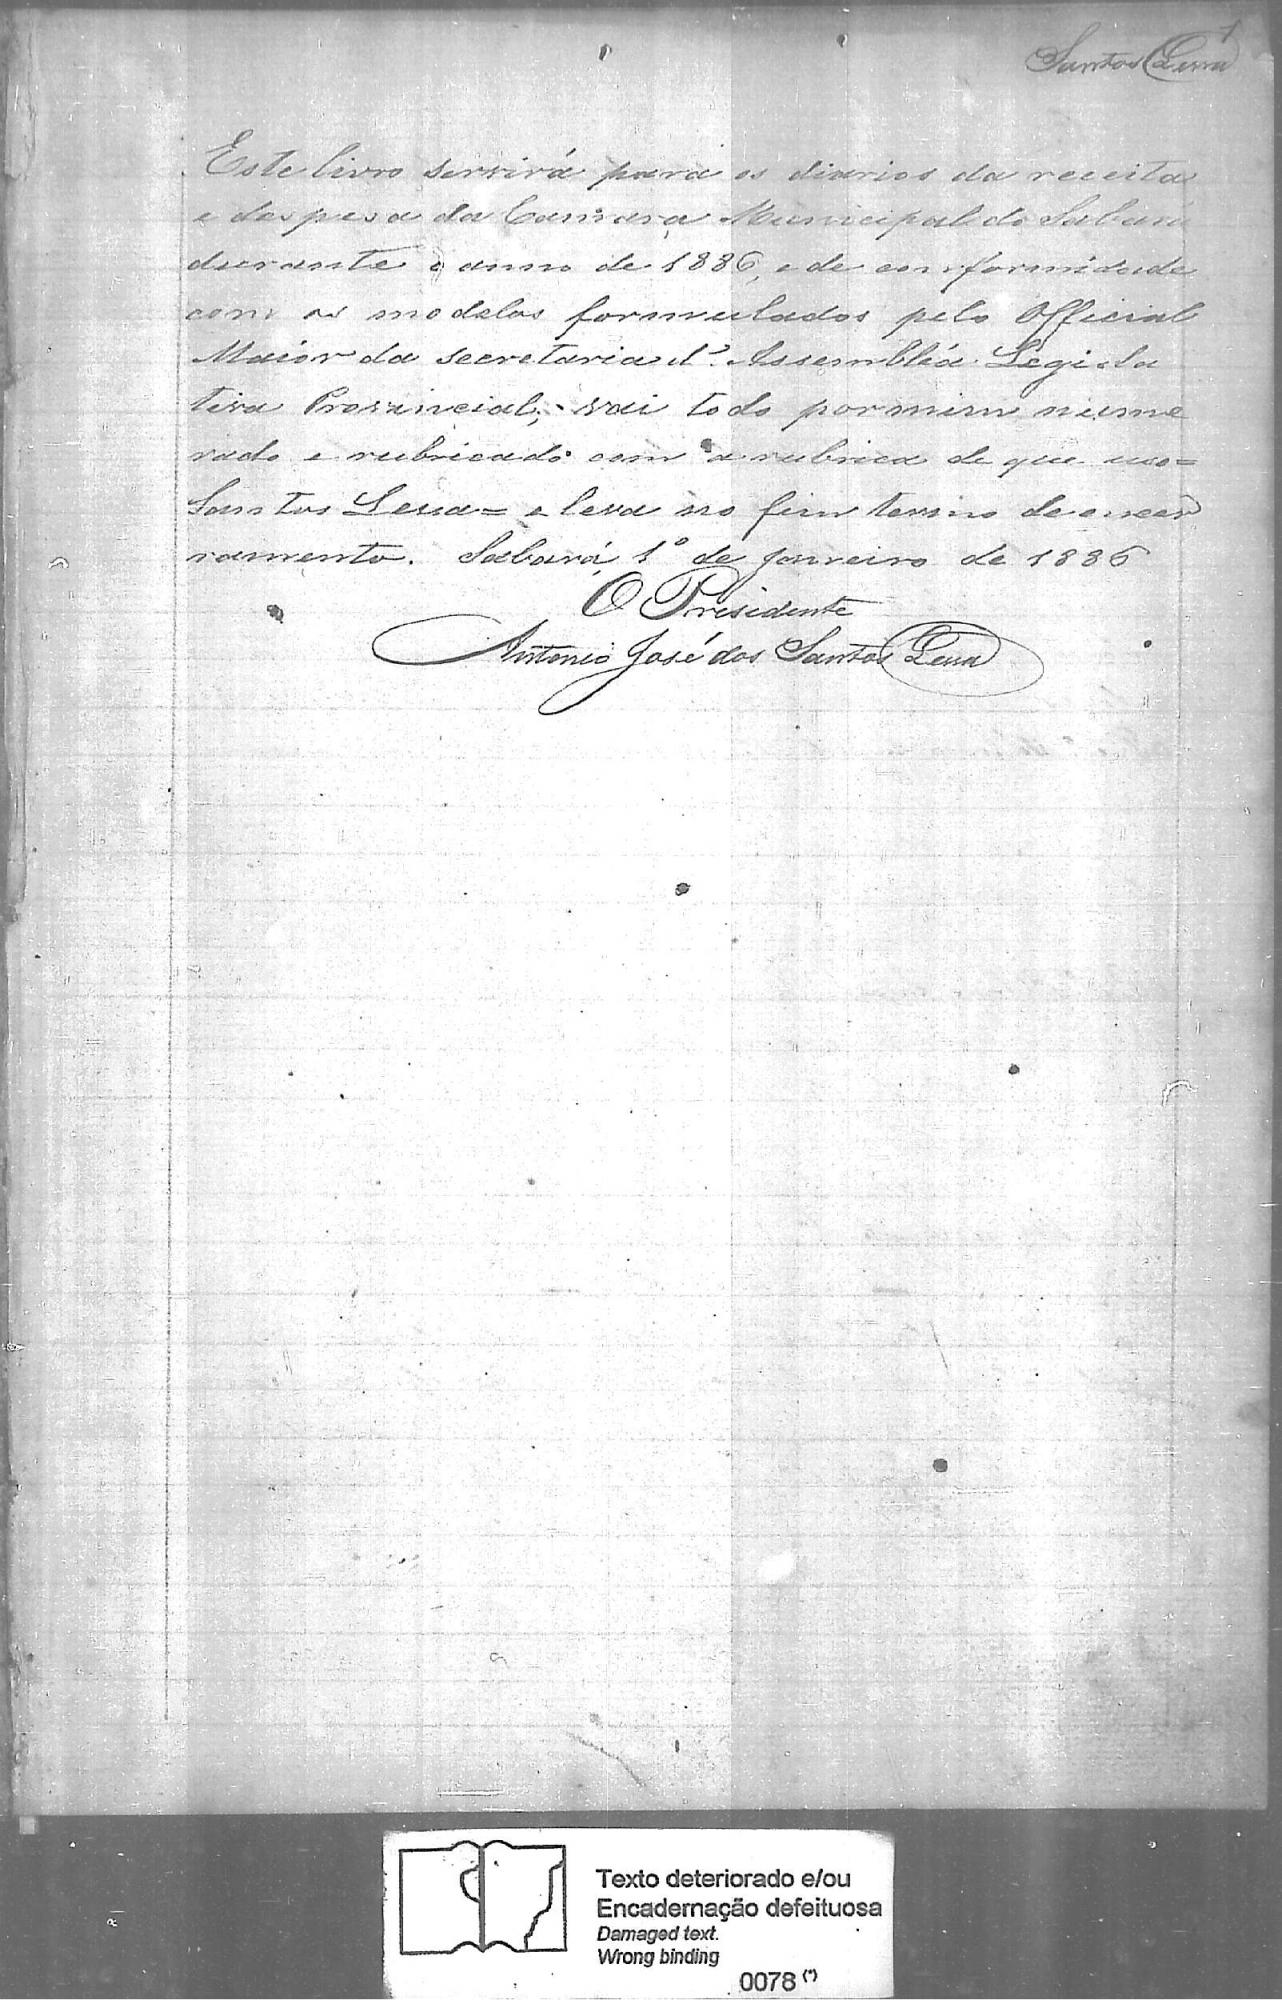 1
Santos Lessa
Este livro servirá para os diarios da receita
e despesa da Camara Municipal do Sabará
durante o anno de 1886, e de conformidade
com os modelos formulados pelo Official
Maior da secretaria d'. Assembléa Legisla
tiva Provincial, vai todo por mim nume
rado e rubricado com a rubrica de que uso=
Santos Lessa= e leva no fim termo de encer
ramento. Sabará, 1º de Janeiro de 1886
O Presidente
Antonio José dos Santos Lessa
Texto deteriorado e/ou
Encadernação defeituosa
Damaged text.
Wrong binding
0078 (*)